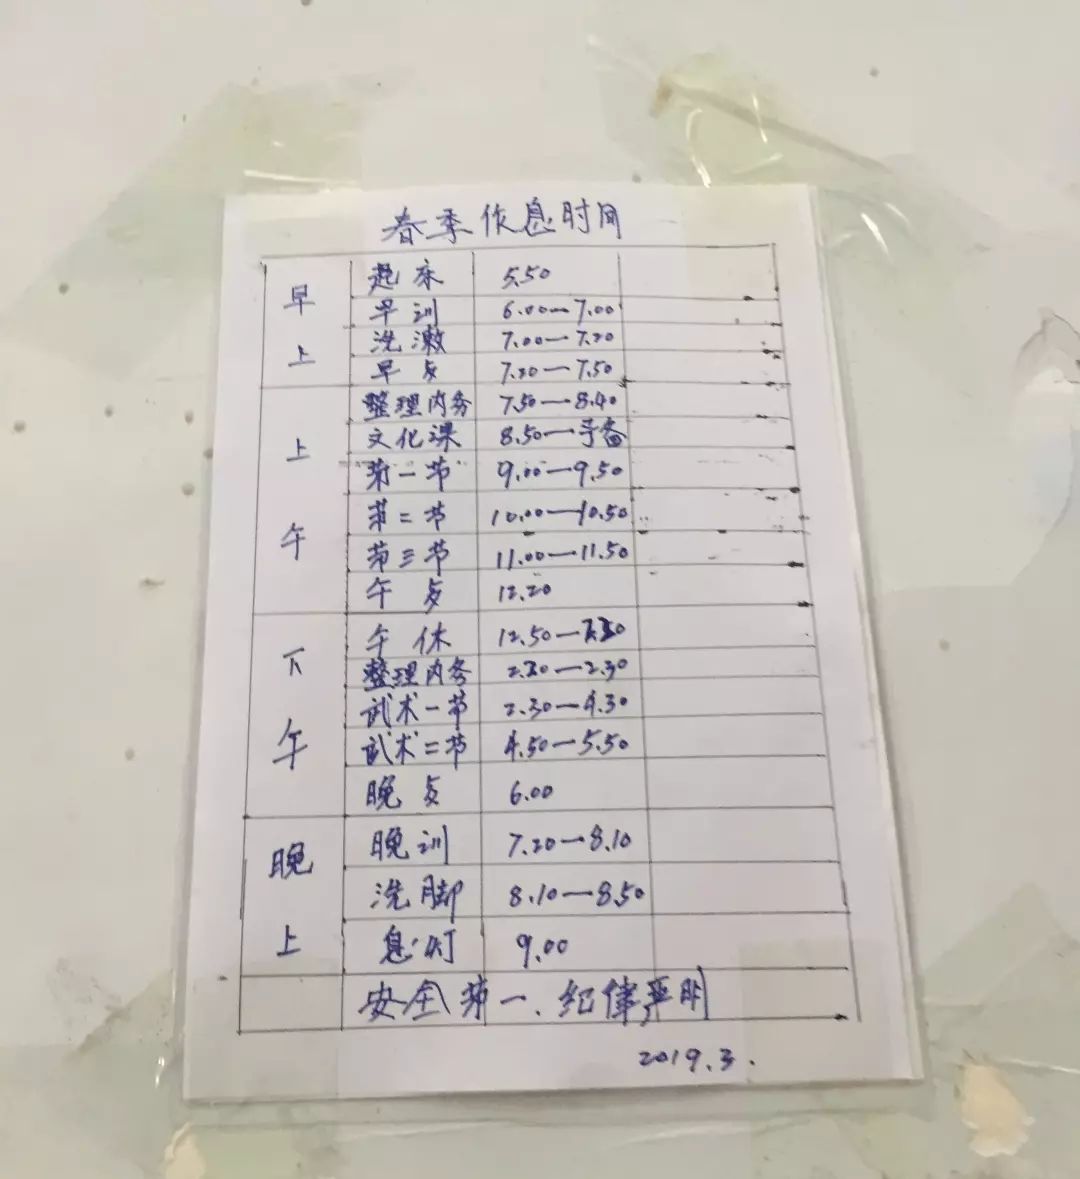 春季作息时间
早上
起床 5.50
早训 6.00—7.00
洗漱 7.00—7.20
早点 7.20—7.50
上午
整理内务 7.50—8.40
文化课 8.50—予备
第一节 9.00—9.50
第二节 10.00—10.50
第三节 11.00—11.50
午点 12.20
下午
午休 12.50—
整理内务 —2.30
武术一节 2.30—4.30
武术二节 4.50—5.50
晚点 6.00
晚上
晚训 7.20—8.10
洗脚 8.10—8.50
息灯 9.00
安全第一、纪律严明
2019.3.